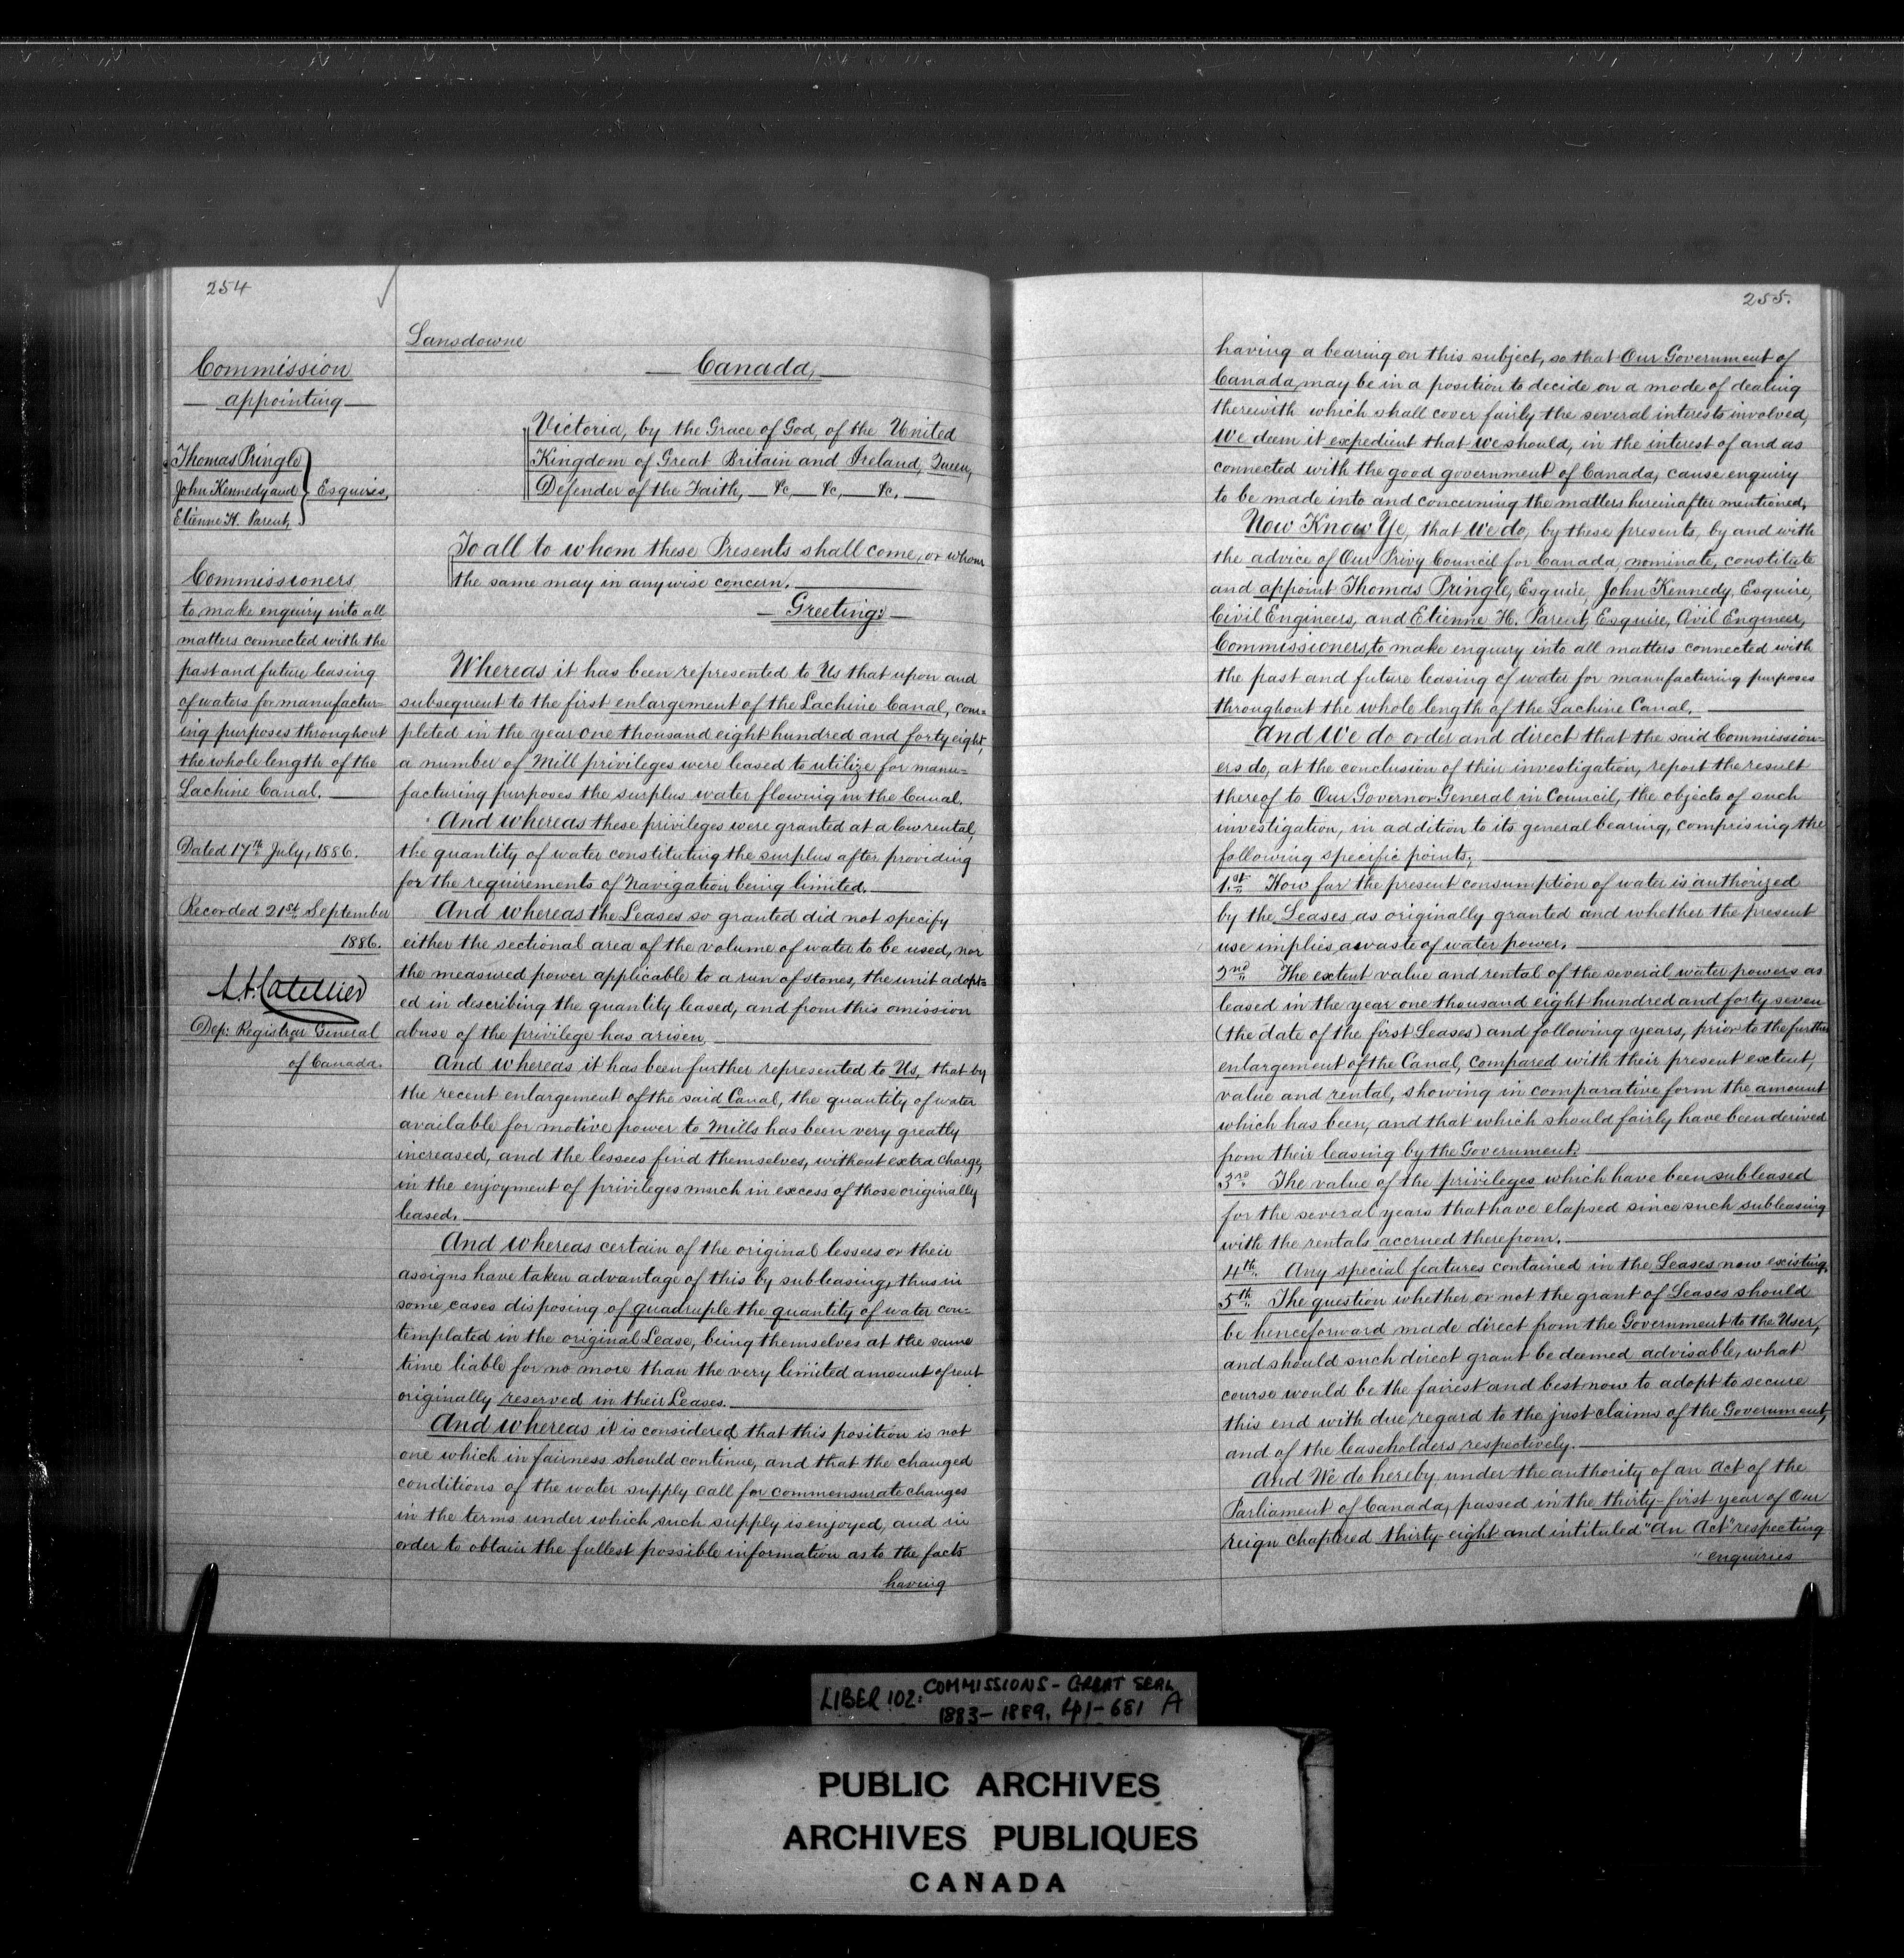 254
Commission
appointing
Thomas Pringle
John Kennedy and Esquires,
Etienne H. Parent,
Commissioners
to make enquiry into all
matters connected with the
past and future leasing
of waters for manufactur=
ing purposes throughout
the whole length of the
Lachine Canal.
Dated 17th July, 1886.
Recorded 21st September
1886.
Dep: Registrar General
of Canada.
Lansdowne
Canada,
Victoria, by the Grace of God, of the United
Kingdom of Great Britain and Ireland, Queen,
Defender of the Faith, &c, &c, &c,
To all to whom these Presents shall come, or whom
the same may in anywise concern.
Greeting:
Whereas it has been represented to Us that upon and
subsequent to the first enlargement of the Lachine Canal, com=
pleted in the year one thousand eight hundred and forty eight,
a number of Mill privileges were leased to utilize for manu=
facturing purposes the surplus water flowing in the Canal.
And whereas these privileges were granted at a low rental,
the quantity of water constituting the surplus after providing
for the requirements of Navigation being limited.
And whereas the Leases so granted did not specify
either the sectional area of the volume of water to be used, nor
the measured power applicable to a run of stones, the unit adopt=
ed in describing the quantity leased, and from this omission
abuse of the privilege has arisen
And whereas it has been further represented to Us, that by
the recent enlargement of the said Canal, the quantity of water
available for motive power to Mills has been very greatly
increased, and the lessees find themselves, without extra charge,
in the enjoyment of privileges much in excess of those originally
leased.
And whereas certain of the original lessees or their
assigns have taken advantage of this by subleasing, thus in
some cases disposing of quadruple the quantity of water con=
templated in the original Lease, being themselves at the same
time liable for no more than the very limited amount of rent
originally reserved in their Leases.
And whereas it is considered that this position is not
one which in fairness should continue, and that the changed
conditions of the water supply call for commensurate changes
in the terms under which such supply is enjoyed, and in
order to obtain the fullest possible information as to the facts
having
255.
having a bearing on this subject, so that Our Government of
Canada, may be in a position to decide on a mode of dealing
therewith which shall cover fairly the several interests involved,
We deem it expedient that We should, in the interest of and as
connected with the good government of Canada, cause enquiry
to be made into and concerning the matters hereinafter mentioned,
Now Know Ye, that We do, by these presents, by and with
the advice of Our Privy Council for Canada, nominate, constitute
and appoint Thomas Pringle, Esquire, John Kennedy, Esquire,
Civil Engineers, and Etienne H. Parent, Esquire, Civil Engineer,
Commissioners, to make enquiry into all matters connected with
the past and future leasing of water for manufacturing purposes
throughout the whole length of the Lachine Canal.
And We do order and direct that the said Commission=
ers do, at the conclusion of their investigation, report the result
thereof to Our Governor General in Council, the objects of such
investigation, in addition to its general bearing, comprising the
following specific points;
1.st How far the present consumption of water is authorized
by the Leases as originally granted and whether the present
use implies a waste of water power.
2nd The extent value and rental of the several water powers as
leased in the year one thousand eight hundred and forty seven
(the date of the first Leases) and following years, prior to the further
enlargement of the Canal, compared with their present extent,
value and rental, showing in comparative form the amount
which has been, and that which should fairly have been derived
from their leasing by the Government.
3rd The value of the privileges which have been subleased
for the several years that have elapsed since such subleasing
with the rentals accrued therefrom.
4th Any special features contained in the Leases now existing.
5th The question whether or not the grant of Leases should
be henceforward made direct from the Government to the User,
and should such direct grant be deemed advisable, what
course would be the fairest and best now to adopt to secure
this end with due regard to the just claims of the Government,
and of the leaseholders respectively.
And We do hereby under the authority of an Act of the
Parliament of Canada, passed in the thirty-first year of Our
reign chaptered thirty-eight and intituled "An Act" respecting
"enquiries
LIBER 102: COMMISSIONS - GREAT SEAL
1883-1889, 41-681 A
PUBLIC ARCHIVES
ARCHIVES PUBLIQUES
CANADA